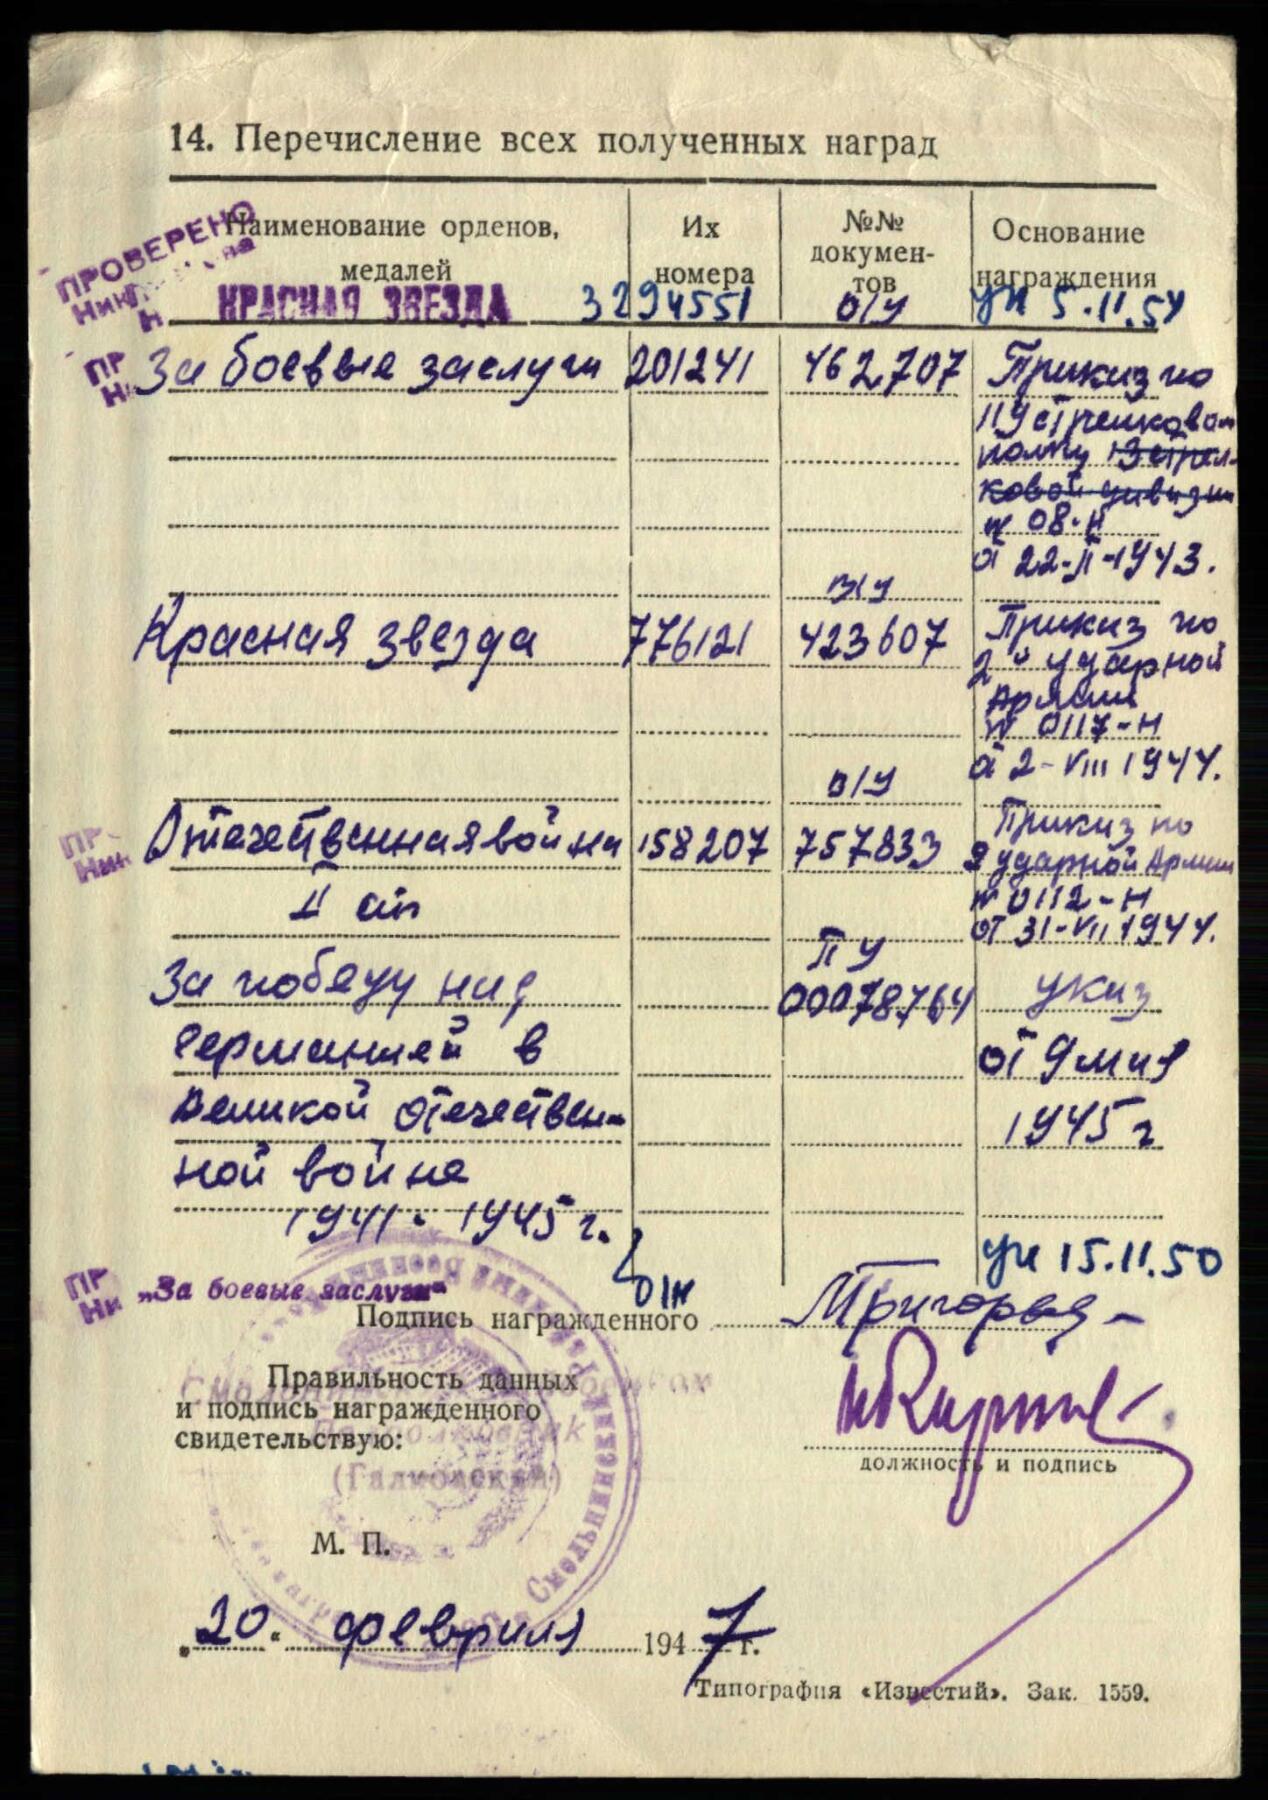 14. Перечисление всех полученных наград
Наименование орденов, медалей
Их номера
№№ докумен-тов
Основание награждения
ПРОВЕРЕНО
КРАСНАЯ ЗВЕЗДА 3294551 О/У ук 5.11.54
За боевые заслуги 201241 462707 Приказ по
119 стрелковом
полку 13 стрел-
ковой дивизии
№ 08-н
от 22-II-1943.
В/У
Красная звезда 776121 423607 Приказ по
2й ударной
Армии
№ 0117-н
от 2-VIII 1944.
О/У
Отечественная война 158207 757833 Приказ по
2 ударной Армии
II ст № 0112-н
от 31-VII 1944.
П У
За победу над 00078764 указ
Германией в от 9 мая
Великой отечествен- 1945 г
ной войне
1941-1945 г.
ук 15.11.50
„За боевые заслуги“ О/н
Подпись награжденного МГригорьев
Правильность данных
и подпись награжденного
свидетельствую:
Подполковник
должность и подпись
М. П.
„20“ февраля 1947 г.
Типография «Известий». Зак. 1559.